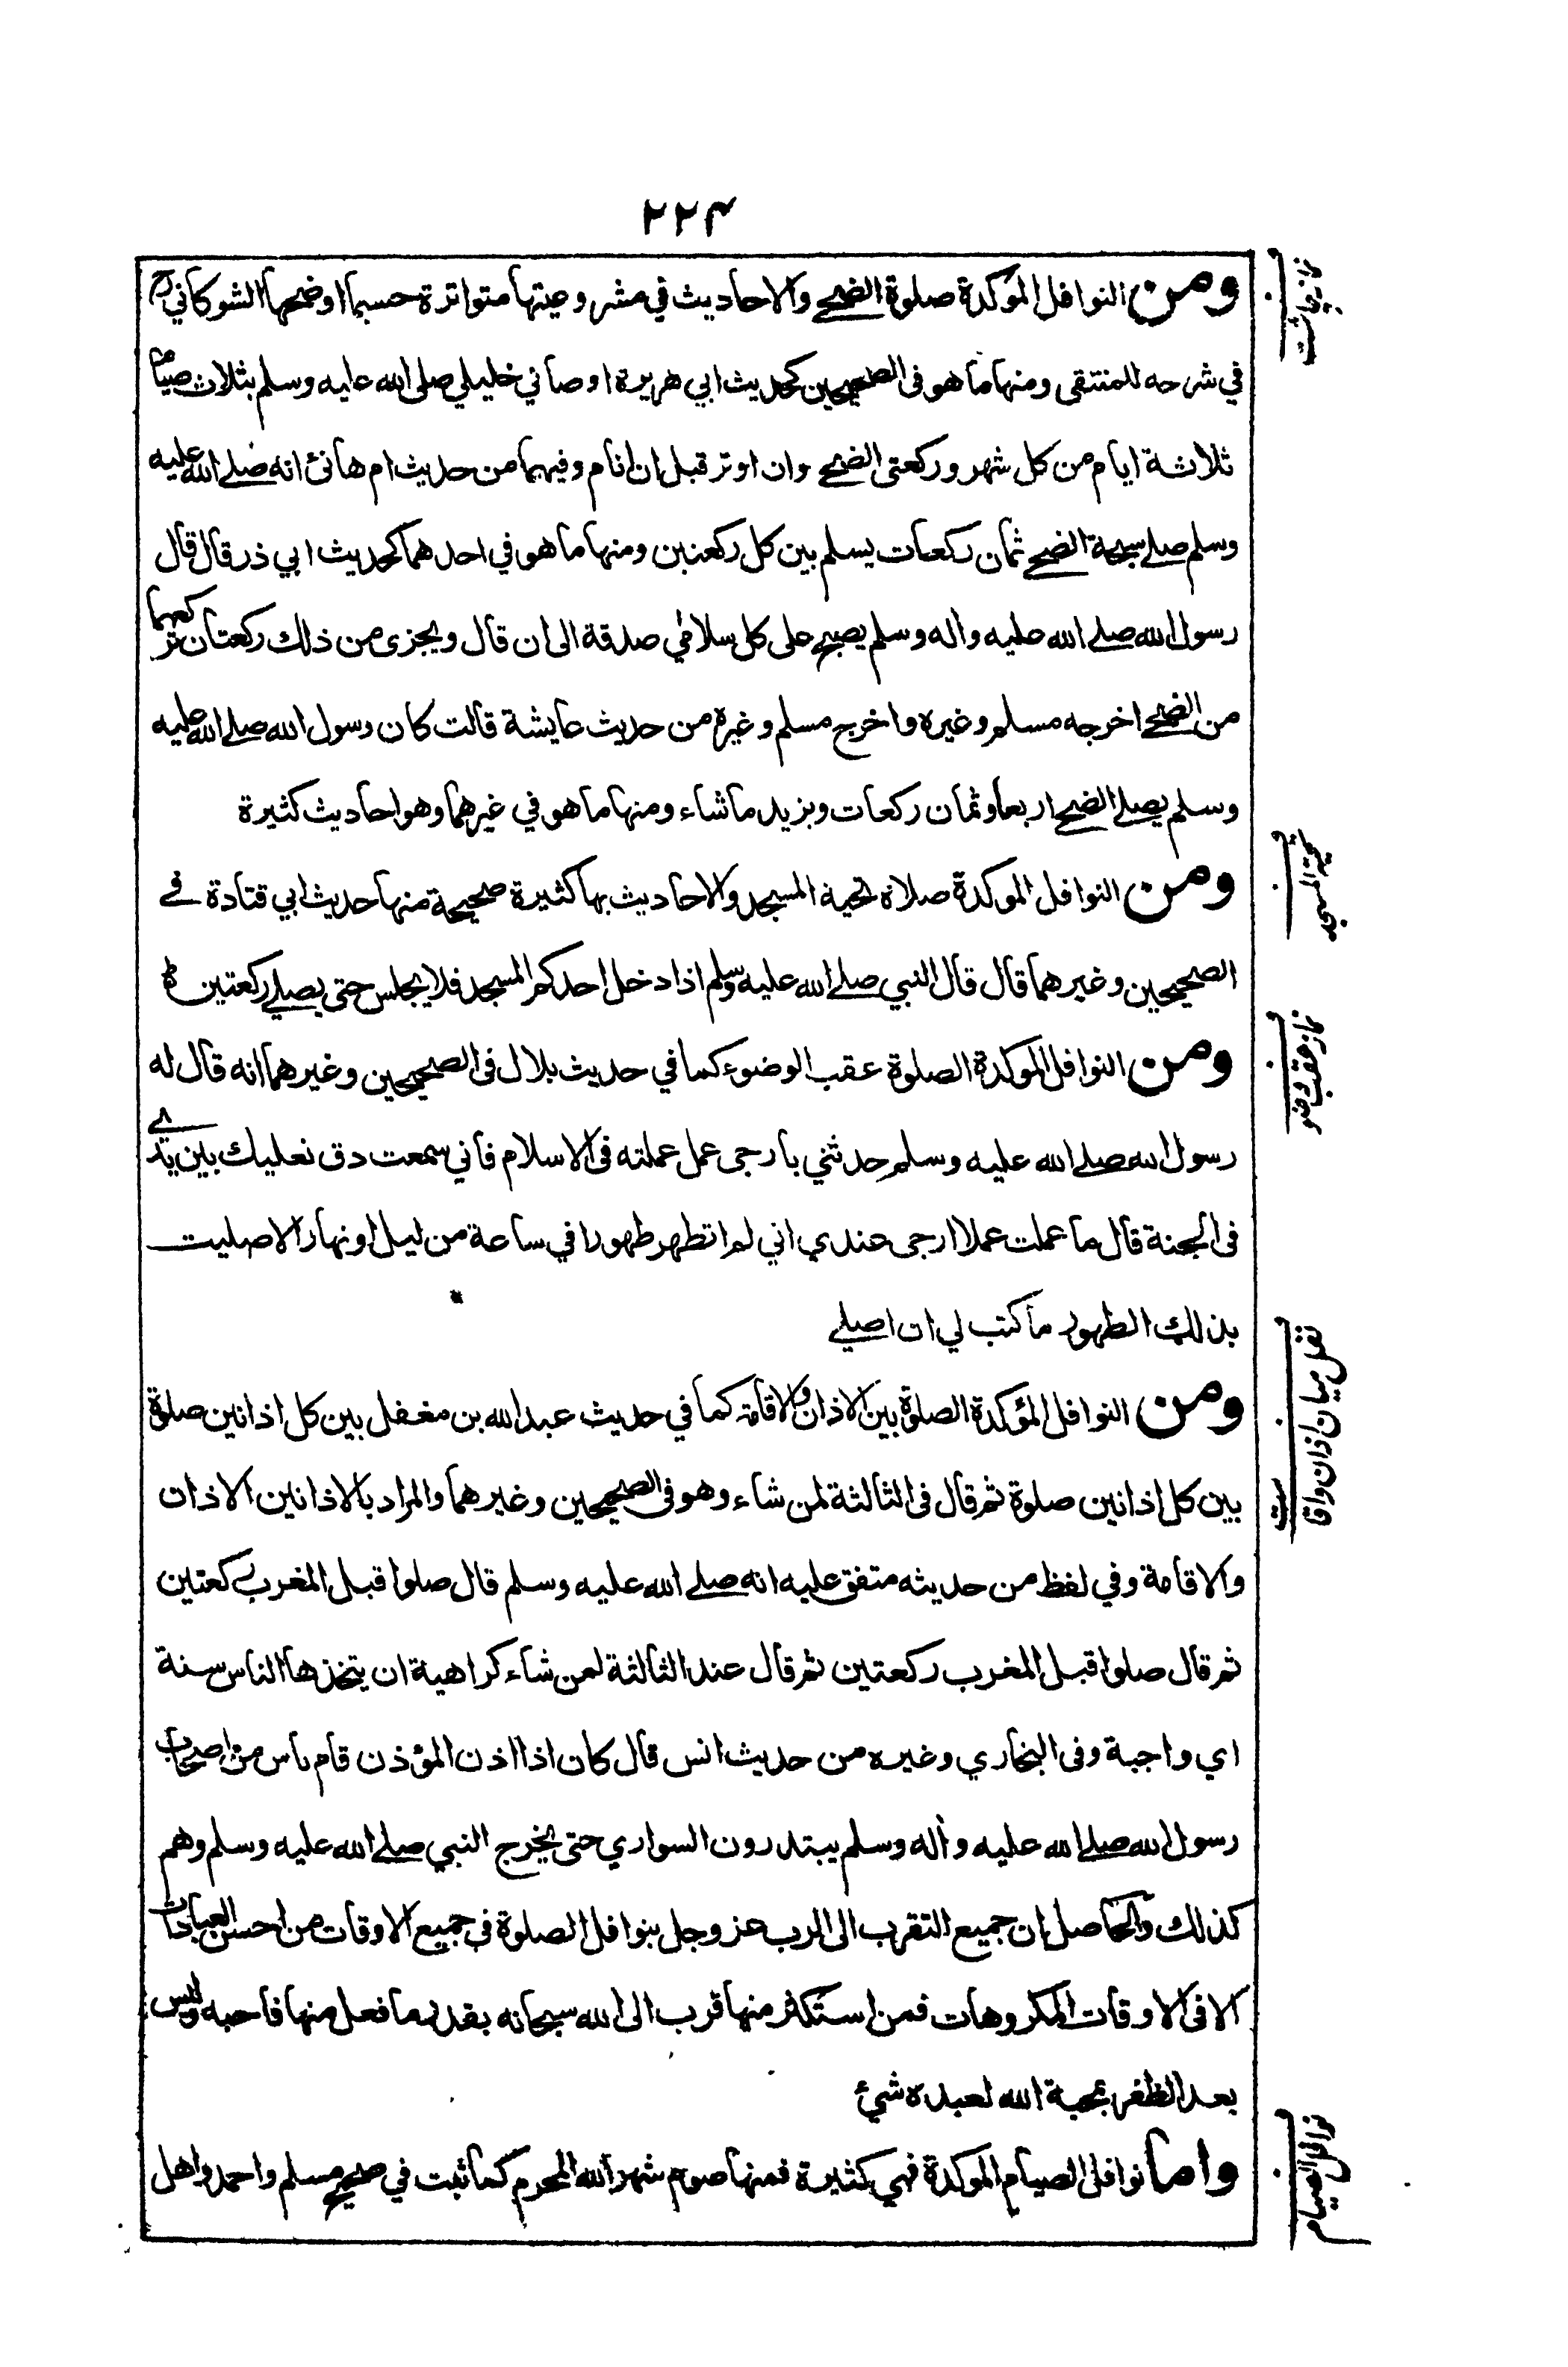 ۲۲۴
ومن النوافل المؤكدة صلوة الضحے والاحاديث في مشروعيتها متواترة حسبما اوضحها الشوكاني رح
في شرحه للمنتقى ومنها ما هو فى الصحيحين كحديث ابي هريرة اوصاني خليلي صلى الله عليه وسلم بثلاث صيام
ثلاثة ايام من كل شهر وركعتى الضحے وان اوتر قبل ان انام وفيهما من حديث ام هانئ انه صلے الله عليه
وسلم صلے سبحة الضحے ثمان ركعات يسلم بين كل ركعتين ومنها ما هو في احدهما كحديث ابي ذر قال قال
رسول الله صلے الله عليه واله وسلم يصبح على كل سلامي صدقة الى ان قال ويجزى من ذلك ركعتان تركعهما
من الضحے اخرجه مسلم وغيره واخرج مسلم وغيره من حديث عايشة قالت كان رسول الله صلے الله عليه
وسلم يصلے الضحے اربعا وثمان ركعات ويزيد ما شاء ومنها ما هو في غيرهما وهو احاديث كثيرة
ومن النوافل الموكدة صلاة تحية المسجد والاحاديث بها كثيرة صحيحة منها حديث ابي قتادة فے
الصحيحين وغيرهما قال قال النبي صلے الله عليه وسلم اذا دخل احدكم المسجد فلا يجلس حتى يصلے ركعتين
ومن النوافل الموكدة الصلوة عقب الوضوء كما في حديث بلال فى الصحيحين وغيرهما انه قال له
رسول الله صلے الله عليه وسلم حدثني بارجى عمل عملته فى الاسلام فاني سمعت دق نعليك بين يدے
فى الجنة قال ما عملت عملا ارجى عندي اني لم اتطهر طهورا في ساعة من ليل او نهار الا صليت
بذلك الطهور ما كتب لي ان اصلے
ومن النوافل المؤكدة الصلوة بين الاذان والاقامة كما في حديث عبد الله بن مغفل بين كل اذانين صلوة
بين كل اذانين صلوة ثم قال فى الثالثة لمن شاء وهو فى الصحيحين وغيرهما والمراد بالاذانين الاذان
والاقامة وفي لفظ من حديثه متفق عليه انه صلے الله عليه وسلم قال صلوا قبل المغرب ركعتين
ثم قال صلوا قبل المغرب ركعتين ثم قال عند الثالثة لمن شاء كراهية ان يتخذها الناس سنة
اي واجبة وفى البخاري وغيره من حديث انس قال كان اذا اذن المؤذن قام ناس من اصحاب
رسول الله صلے الله عليه واله وسلم يبتدرون السواري حتى يخرج النبي صلے الله عليه وسلم وهم
كذلك والحاصل ان جميع التقرب الى الرب عز وجل بنوافل الصلوة في جميع الاوقات من احسن العبادات
الا فى الاوقات المكروهات فمن استكثر منها قرب الى الله سبحانه بقدر ما فعل منها فاحبه وليس
بعد الظفر بمحبة الله لعبده شئ
واما نوافل الصيام الموكدة فهي كثيرة فمنها صوم شهر الله المحرم كما ثبت في صحيح مسلم واحمد واهل
نماز چاشت
تحية المسجد
نماز عقب وضو
نفل ميان اذان واقامت
نوافل الصيام